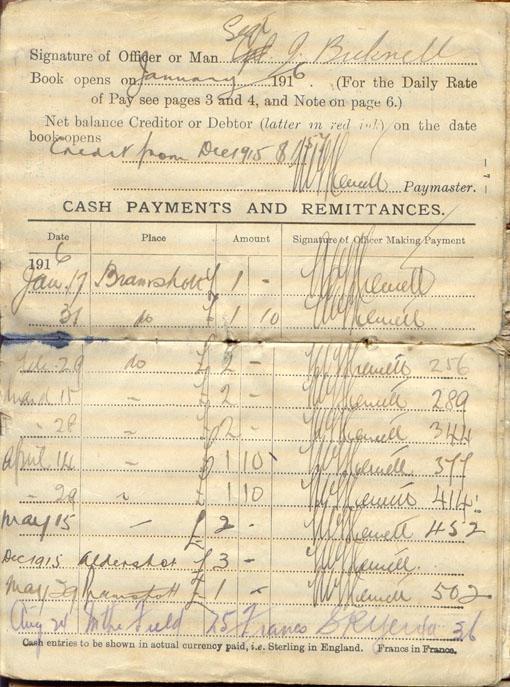 Sergt
Signature of Officer or Man J. Bicknell
Book opens on January 1916. (For the Daily Rate
of Pay see pages 3 and 4, and Note on page 6.)
Net balance Creditor or Debtor (latter in red ink) on the date
book opens
Credit from Dec 1915
Paymaster.
- 7 -
CASH PAYMENTS AND REMITTANCES.
Date Place Amount Signature of Officer Making Payment
1916
Jan. 17 Bramshott £ 1 -
31 do £ 1 10
Feb. 29 do £ 2 - 256
March 15 " £ 2 - 289
" 28 " £ 2 - 344
April 14 " £ 1 10 377
" 29 " £ 1 10 414
May 15 " £ 2 - 452
Dec 1915 Aldershot £ 3 -
May 29 Bramshott £ 1 - 502
Aug In the Field 75 Francs 36
Cash entries to be shown in actual currency paid, i.e. Sterling in England. Francs in France.